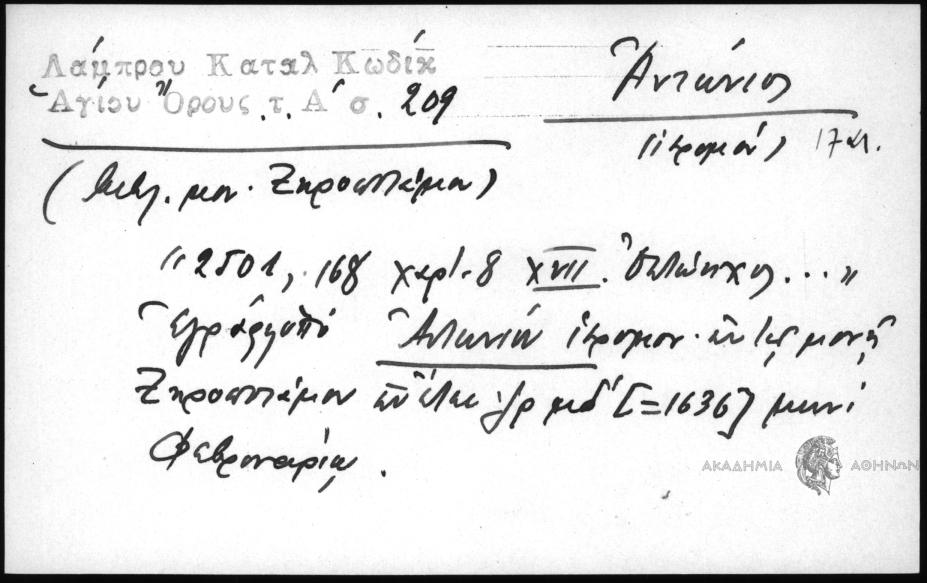 Λάμπρου Καταλ Κωδίκ
Ἁγίου Ὄρους τ. Α΄ σ. 209
Ἀντώνιος
(ἱερομον) 17 αι.
(Βιβλ. μον. Ξηροποτάμου)
"2501, 168 χαρτ. 8 XVII. Ὀκτώηχος ... "
Ἐγράφη ὑπὸ Ἀντωνίου ἱερομον. ἐν τῇ μονῇ
Ξηροποτάμου ἐν ἔτει ͵ζρμδ΄ [=1636] μηνὶ
Φεβρουαρίῳ.
ΑΚΑΔΗΜΙΑ ΑΘΗΝΩΝ